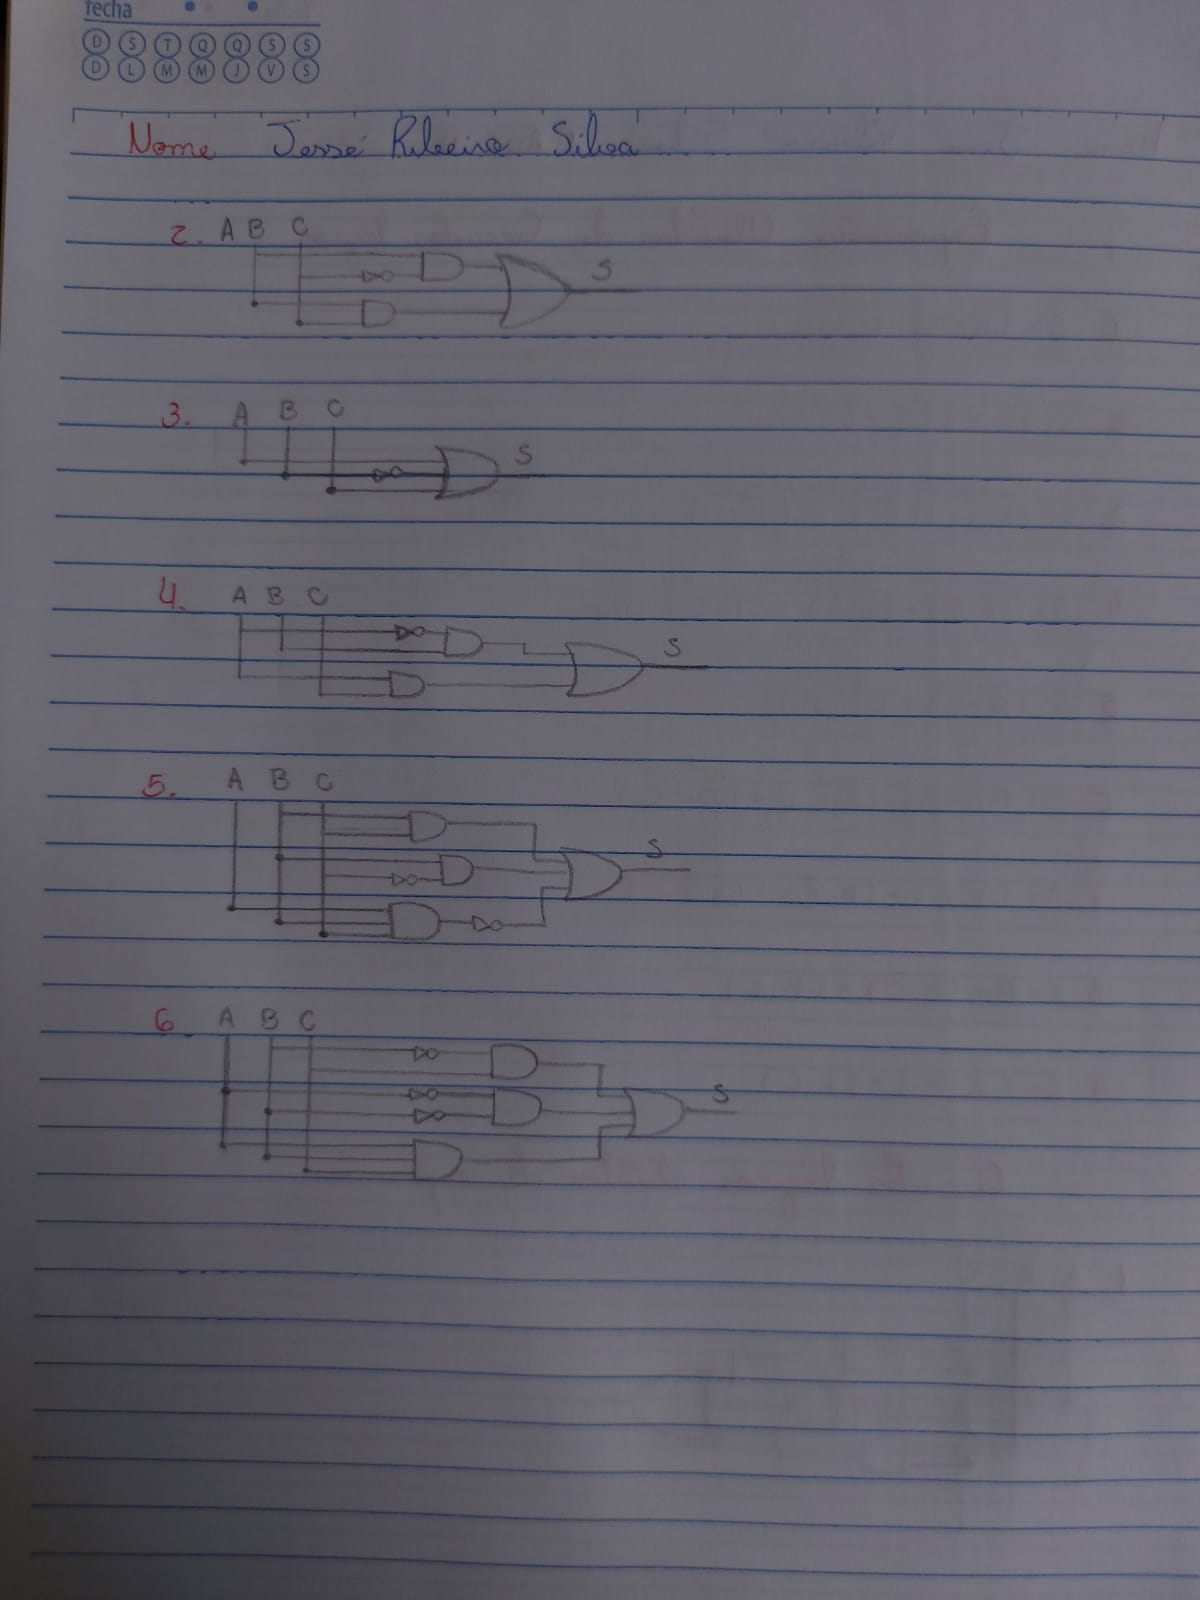 fecha
D S T Q Q S S
D L M M J V S
Nome Jessé Ribeiro Silva
2. A B C
S
3. A B C
S
4. A B C
S
5. A B C
S
6 A B C
S